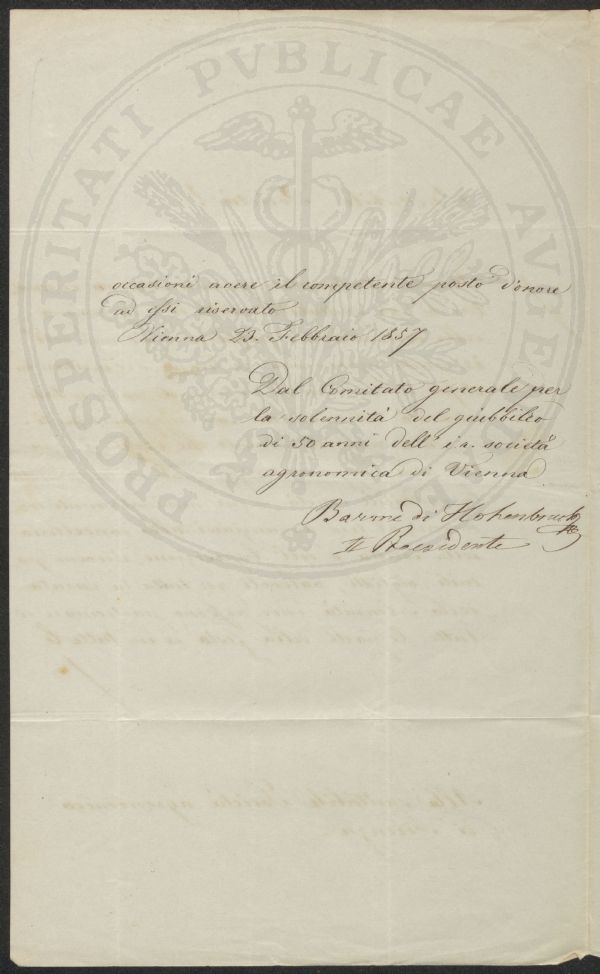 PROSPERITATI PVBLICAE AVGE
occasioni avere il competente posto d'onore
ad essi riservato
Vienna 23. Febbraio 1857
Dal Comitato generale per
la solennità del giubbileo
di 50 anni dell' i. r. società
agronomica di Vienna
Barone di Hohenbruck
Il Presidente